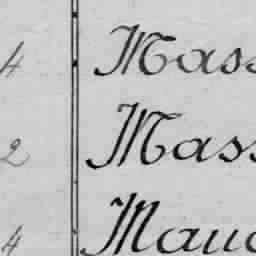 4 Mass
2 Mass
4 Mauc